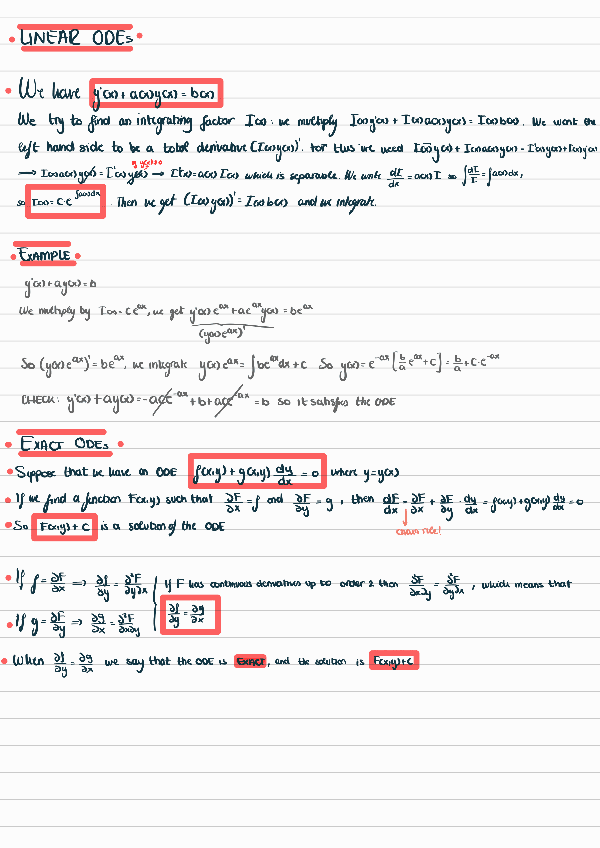 LINEAR ODEs
We have y'(x) + a(x)y(x) = b(x)
We try to find an integrating factor I(x): we multiply I(x)y'(x) + I(x)a(x)y(x) = I(x)b(x). We want the
left hand side to be a total derivative (I(x)y(x))'. For this we need I(x)y'(x) + I(x)a(x)y(x) = I'(x)y(x) + I(x)y'(x)
⟶ I(x)a(x)y(x) = I'(x)y(x) ⟶ I'(x) = a(x)I(x) which is separable. We write dI/dx = a(x)I so ∫dI/I = ∫a(x)dx,
so I(x) = C·e^∫a(x)dx. Then we get (I(x)y(x))' = I(x)b(x) and we integrate.
EXAMPLE
y'(x) + ay(x) = b
We multiply by I(x) = Ce^ax, we get y'(x)e^ax + ae^ax y(x) = be^ax
(y(x)e^ax)'
So (y(x)e^ax)' = be^ax, we integrate y(x)e^ax = ∫be^ax dx + C So y(x) = e^-ax [b/a e^ax + C] = b/a + C·e^-ax
CHECK: y'(x) + ay(x) = -ace^-ax + b + ace^-ax = b so it satisfies the ODE
EXACT ODEs
Suppose that we have an ODE f(x,y) + g(x,y) dy/dx = 0 where y=y(x)
If we find a function F(x,y) such that ∂F/∂x = f and ∂F/∂y = g, then dF/dx = ∂F/∂x + ∂F/∂y · dy/dx = f(x,y) + g(x,y) dy/dx = 0
chain rule!
So F(x,y) + C is a solution of the ODE
If f = ∂F/∂x ⟹ ∂f/∂y = ∂²F/∂y∂x if F has continuous derivatives up to order 2 then ∂²F/∂x∂y = ∂²F/∂y∂x, which means that
If g = ∂F/∂y ⟹ ∂g/∂x = ∂²F/∂x∂y ∂f/∂y = ∂g/∂x
When ∂f/∂y = ∂g/∂x we say that the ODE is EXACT, and the solution is F(x,y)+C